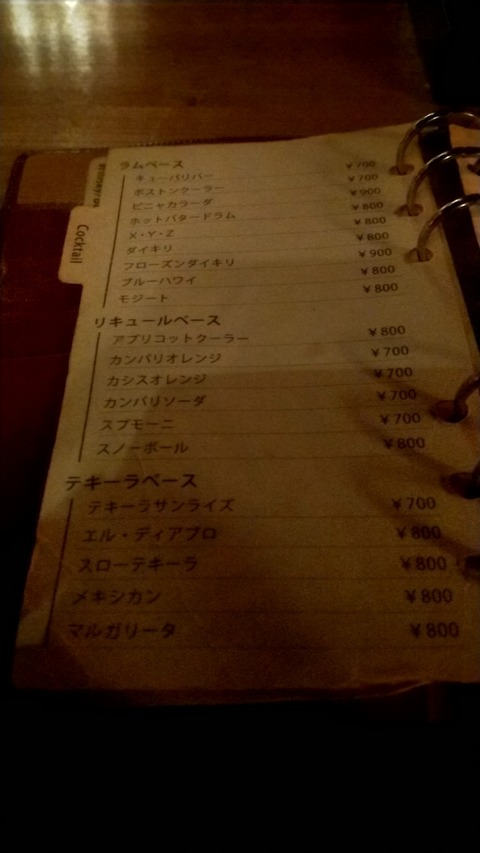 Cocktail
ラムベース
キューバリバー ¥700
ボストンクーラー ¥700
ピニャカラーダ ¥900
ホットバタードラム ¥800
X・Y・Z ¥800
ダイキリ ¥800
フローズンダイキリ ¥900
ブルーハワイ ¥800
モジート ¥800
リキュールベース
アプリコットクーラー ¥800
カンパリオレンジ ¥700
カシスオレンジ ¥700
カンパリソーダ ¥700
スプモーニ ¥700
スノーボール ¥800
テキーラベース
テキーラサンライズ ¥700
エル・ディアブロ ¥800
スローテキーラ ¥800
メキシカン ¥800
マルガリータ ¥800